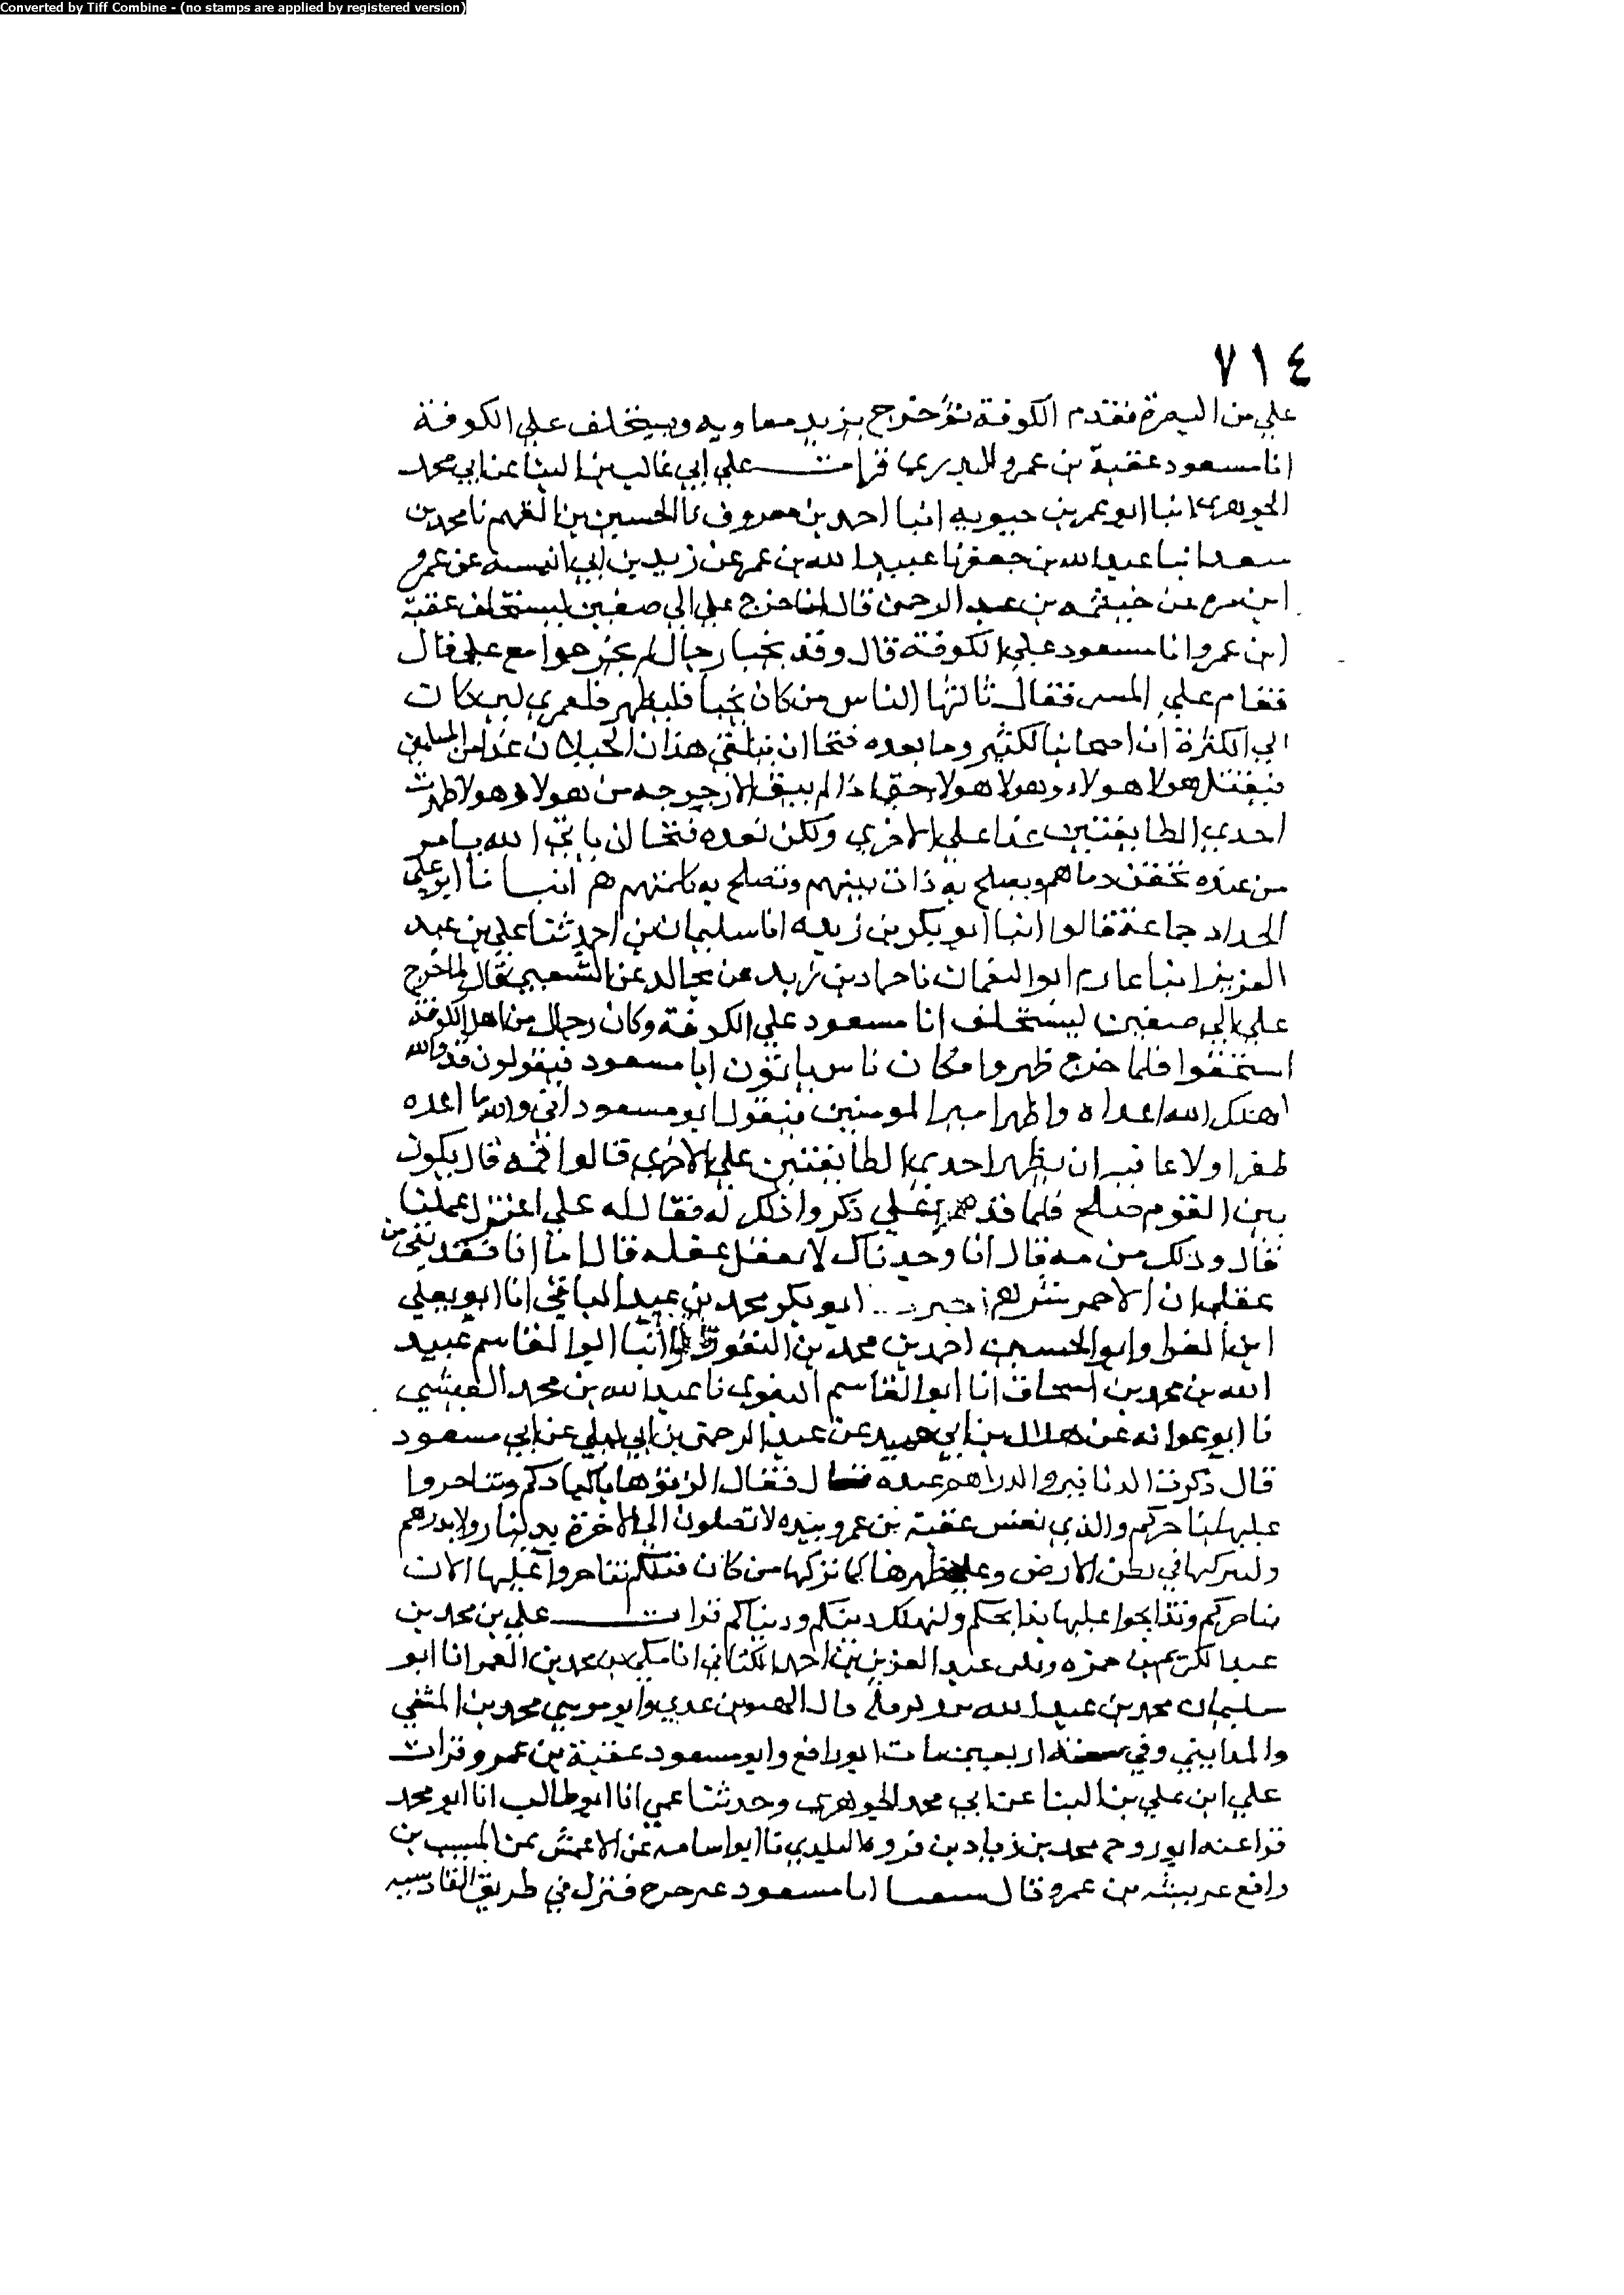 Converted by Tiff Combine - (no stamps are applied by registered version)
٧١٤
علي من البصرة فقدم الكوفة ثم خرج يزيد معاويه ويستخلف علي الكوفة
انا مسعود عقبة بن عمرو البدري قرات علي ابي غالب بن البنا عن ابي محمد
الجوهري انبا ابو عمر بن حيويه انبا احمد بن معروف نا الحسين بن الفهم نا محمد بن
سعد انبا عبد الله بن جعفر نا عبيد الله بن عمر عن زيد بن ابي انيسة عن عمرو
ابن مره عن خيثمه بن عبد الرحمن قال لما خرج علي الي صفين ليستخلف عقبة
ابن عمرو انا مسعود علي الكوفة قال وقد تخبا رجال لم يخرجوا مع علي قال
فقام علي فقال الناس من كان تخبا فليظهر فلعمري لين كان
الي الكثرة ان اصحابنا لكثير وما بعده فتحا ان يلتقي هذان الجبلان غدا من المسلمين
فيقتل هولا هولاء وهولا هولا حتي اذا لم يبق الا رجرجه من هولا وهولا ظهرت
احدي الطايفتين علي الاخري ولكن نعده فتحا ان ياتي الله بامر
من عنده تحقن دماهم ويصلح به ذات بينهم وتصلح به كلمتهم هم انبا نا ابو علي
الحداد جماعة قالوا انبا ابو بكر بن زيده انا سليمان بن احمد ثنا علي بن عبد
العزيز انبا عارم ابو النعمان نا حماد بن زيد عن مجالد عن الشعبي قال لما خرج
علي الي صفين ليستخلف انا مسعود علي الكوفة وكان رجال من اهل الكوفة
استخفوا فلما خرج ظهروا فكان ناس ياتون ابا مسعود فيقولون قد والله
اهلك الله اعداه واظهر امير المومنين فيقول ابو مسعود اني والله ما اعده
ظفرا ولا عافيه ان يظهر احدي الطايفتين علي الاخري قالوا فمه قال يكون
بين القوم صلح فلما قدم علي ذكروا ذلك له فقال له علي اعتزل عملنا
قال وذلك من مه قال انا وجدناك لا تعقل عقله قال اما انا فقد بقي من
عقلي ان الاخر شر اخبرنا ابو بكر محمد بن عبد الباقي انا ابو يعلي
ابن الفرا وابو الحسين احمد بن محمد بن النقور قالا انبا ابو القاسم عبيد
الله بن محمد بن اسحاق انا ابو القاسم البغوي نا عبد الله بن محمد العيشي
نا ابو عوانه عن هلال بن ابي حميد عن عبد الرحمن بن ابي ليلي عن ابي مسعود
قال ذكرت الدنانير والدراهم عنده فقال الزقوها باكبادكم وتناحروا
عليها تناحركم والذي نفس عقبة بن عمرو بيده لا تصلون الي الاخرة بدينار ولا بدرهم
ولتتركنها في بطن الارض وعلي ظهرها كما تركها من كان قبلكم تناحروا عليها الان
تناحركم وتذابحوا عليها تذابحكم ولتهلك دينكم ودنياكم قرات علي بن محمد بن
عبد الكريم بن حمزه عبد العزيز بن احمد الكتاني انا مكي بن محمد بن الغمر انا ابو
سليمان محمد بن عبد الله قال الهيثم بن عدي وابو موسي محمد بن المثني
والمدايني وفي سنة اربعين مات ابو رافع وابو مسعود عقبة بن عمرو قرات
علي ابن علي بن البنا عن ابي محمد الجوهري وحدثنا عمي انا ابو طالب انا ابو محمد
قرا عنه ابو روح محمد بن زياد بن فروة البلدي نا ابو اسامه عن الاعمش عن المسيب بن
رافع بن عمرو قال ابا مسعود خرج فنزل في طريق القادسيه